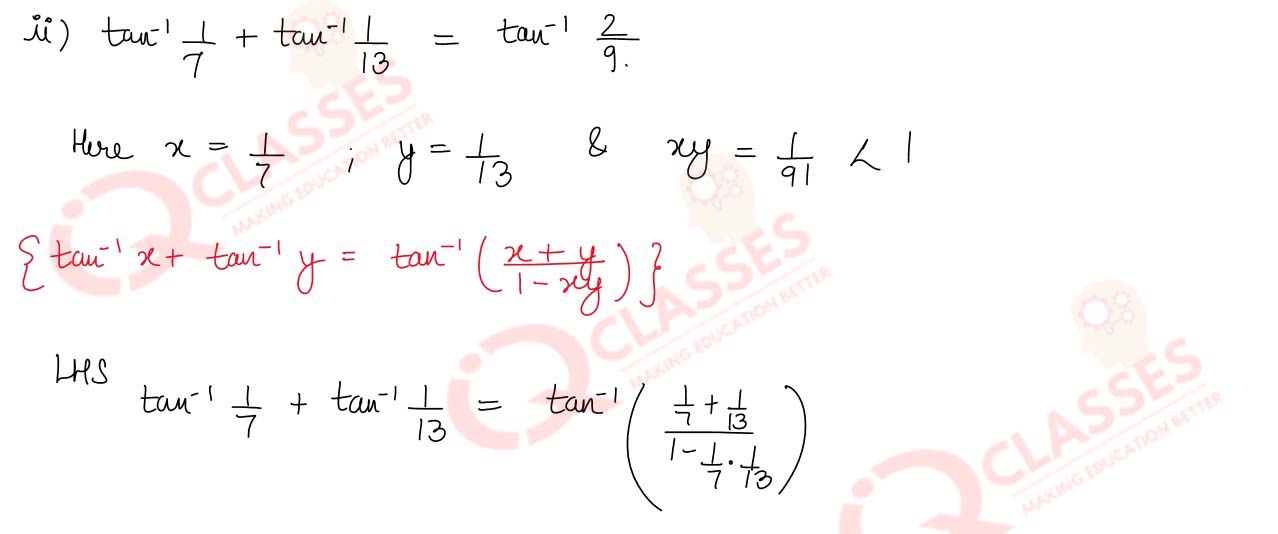 ii) tan⁻¹ 1/7 + tan⁻¹ 1/13 = tan⁻¹ 2/9.
Here x = 1/7 ; y = 1/13 & xy = 1/91 < 1
{tan⁻¹ x + tan⁻¹ y = tan⁻¹ (x + y / 1 - xy)}
LHS
tan⁻¹ 1/7 + tan⁻¹ 1/13 = tan⁻¹ (1/7 + 1/13 / 1 - 1/7 · 1/13)
IQ CLASSES
MAKING EDUCATION BETTER
IQ CLASSES
MAKING EDUCATION BETTER
IQ CLASSES
MAKING EDUCATION BETTER